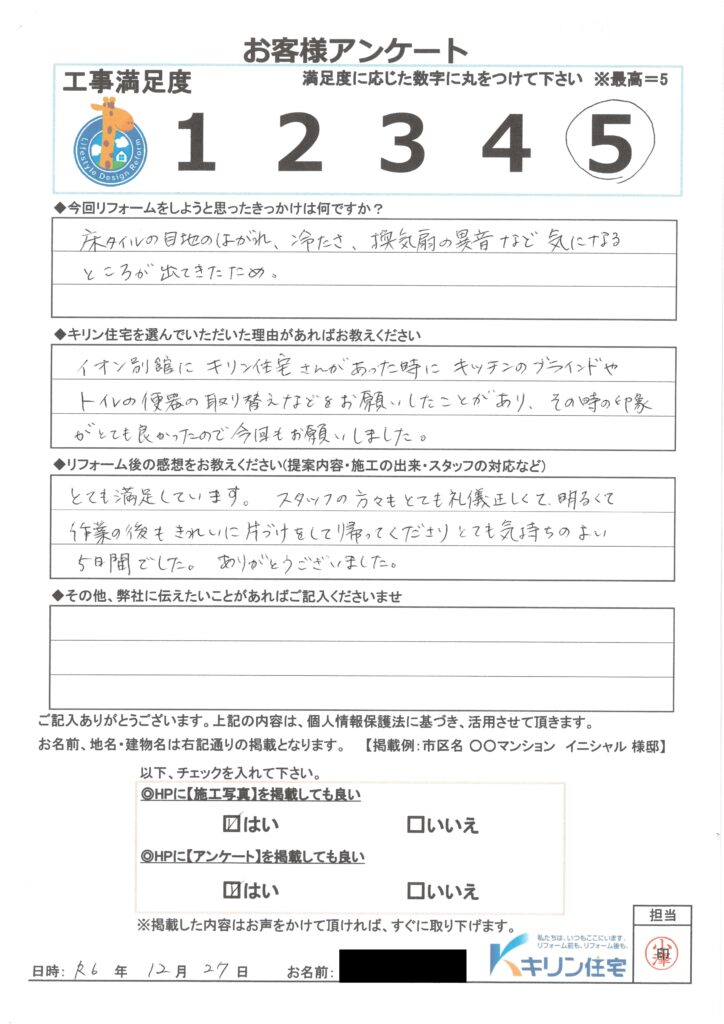 お客様アンケート
工事満足度　満足度に応じた数字に丸をつけて下さい　※最高＝5
Lifestyle Design Reform
1 2 3 4 5
◆今回リフォームをしようと思ったきっかけは何ですか？
床タイルの目地のはがれ、冷たさ、換気扇の異音など気になる
ところが出てきたため。
◆キリン住宅を選んでいただいた理由があればお教えください
イオン別館にキリン住宅さんがあった時にキッチンのブラインドや
トイレの便器の取り替えなどをお願いしたことがあり、その時の印象
がとても良かったので今回もお願いしました。
◆リフォーム後の感想をお教えください(提案内容・施工の出来・スタッフの対応など)
とても満足しています。スタッフの方々もとても礼儀正しくて、明るくて
作業の後もきれいに片づけをして帰ってくださりとても気持ちのよい
5日間でした。ありがとうございました。
◆その他、弊社に伝えたいことがあればご記入くださいませ
ご記入ありがとうございます。上記の内容は、個人情報保護法に基づき、活用させて頂きます。
お名前、地名・建物名は右記通りの掲載となります。　【掲載例：市区名 〇〇マンション　イニシャル 様邸】
以下、チェックを入れて下さい。
◎HPに【施工写真】を掲載しても良い
☑はい　□いいえ
◎HPに【アンケート】を掲載しても良い
☑はい　□いいえ
※掲載した内容はお声をかけて頂ければ、すぐに取り下げます。
担当
私たちは、いつもここにいます。
リフォーム前も、リフォーム後も。
キリン住宅
印
日時：R6 年 12 月 27 日　お名前：